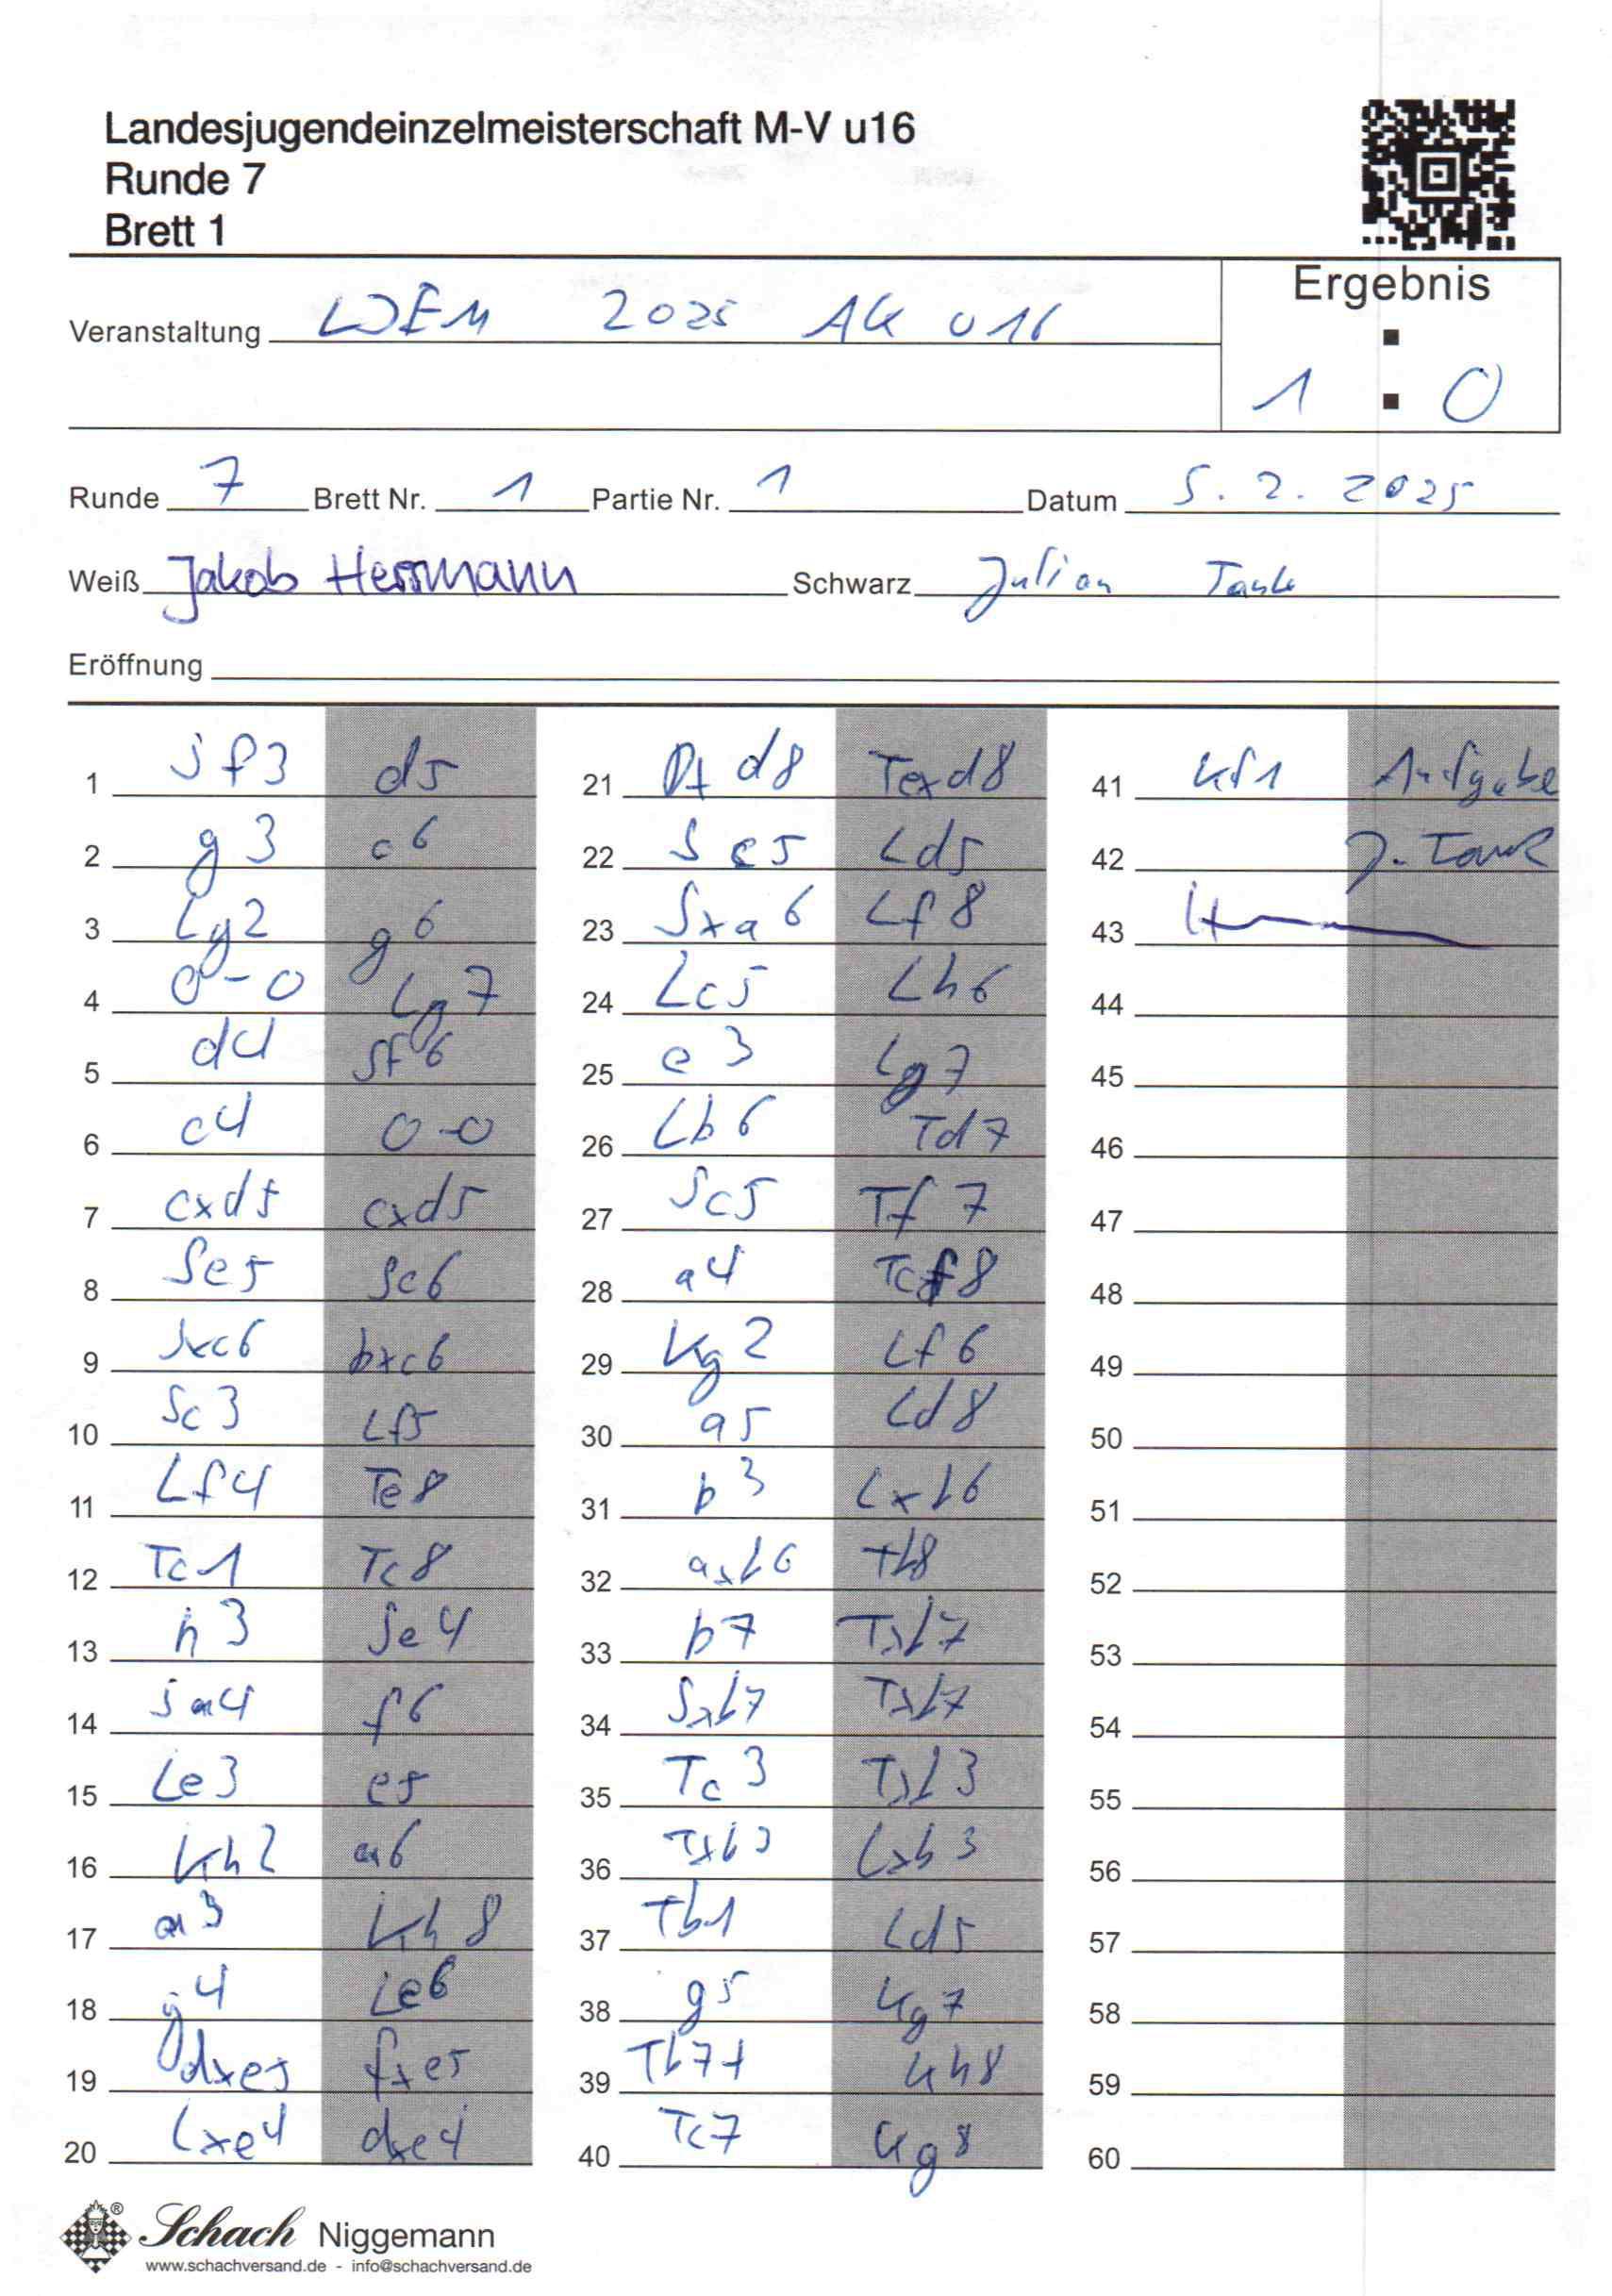 Landesjugendeinzelmeisterschaft M-V u16
Runde 7
Brett 1
Ergebnis
Veranstaltung LJEM 2025 AK U16
1 : 0
Runde 7 Brett Nr. 1 Partie Nr. 1 Datum 5.2.2025
Weiß Jakob Herrmann Schwarz Julian Tank
Eröffnung
1 Sf3 d5
2 g3 c6
3 Lg2 g6
4 0-0 Lg7
5 d4 Sf6
6 c4 0-0
7 cxd5 cxd5
8 Se5 Sc6
9 Sxc6 bxc6
10 Sc3 Lf5
11 Lf4 Te8
12 Tc1 Tc8
13 h3 Se4
14 Sa4 f6
15 Le3 e5
16 Kh2 a6
17 a3 Kh8
18 g4 Le6
19 dxe5 fxe5
20 Lxe4 dxe4
21 Dxd8 Texd8
22 Sc5 Ld5
23 Sxa6 Lf8
24 Lc5 Lh6
25 e3 Lg7
26 Lb6 Td7
27 Sc5 Tf7
28 a4 Tcf8
29 Kg2 Lf6
30 a5 Ld8
31 b3 Lxb6
32 axb6 Tb8
33 b7 Txb7
34 Sxb7 Txb7
35 Tc3 Txb3
36 Txb3 Lxb3
37 Tb1 Ld5
38 g5 Kg7
39 Tb7+ Kh8
40 Tc7 Kg8
41 Kf1 Aufgabe
42 J. Tank
43
44
45
46
47
48
49
50
51
52
53
54
55
56
57
58
59
60
Schach Niggemann
www.schachversand.de - info@schachversand.de